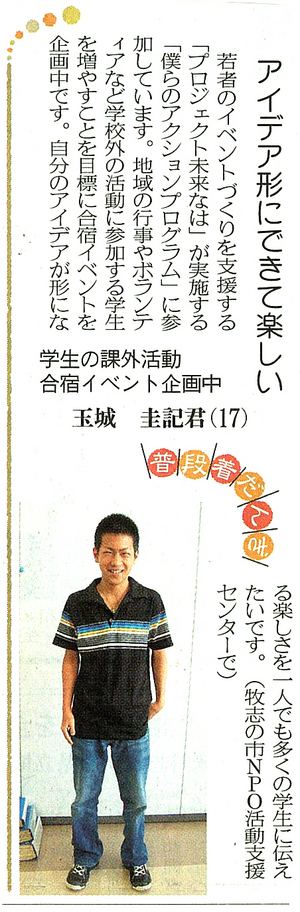 アイデア形にできて楽しい
若者のイベントづくりを支援する
「プロジェクト未来なは」が実施する
「僕らのアクションプログラム」に参
加しています。地域の行事やボランテ
ィアなど学校外の活動に参加する学生
を増やすことを目標に合宿イベントを
企画中です。自分のアイデアが形にな
学生の課外活動
合宿イベント企画中
玉城 圭記君(17)
普段着だてぎ
る楽しさを一人でも多くの学生に伝え
たいです。(牧志の市NPO活動支援
センターで)